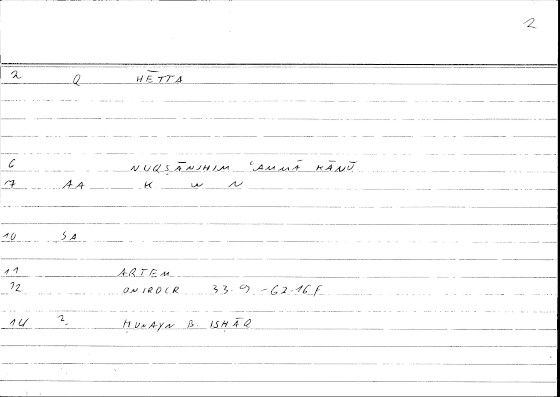 2
2 Q HĒTTA
6 NUQṢĀNIHIM ʿAMMĀ KĀNŪ
7 AA K W N
10 SA
11 ARTEM
12 ONIROCR 33.9 -62.16F
14 2. ḤUNAYN B. ISḤĀQ